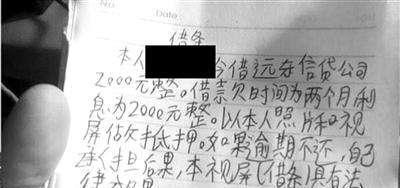 No.
Date
借条
本人 今借远方信贷公司
2000元整。借款时间为两个月利
息为2000元整。以本人照片和视
屏做抵押。如果逾期不还，自己
承担后果，本视屏(借条)具有法